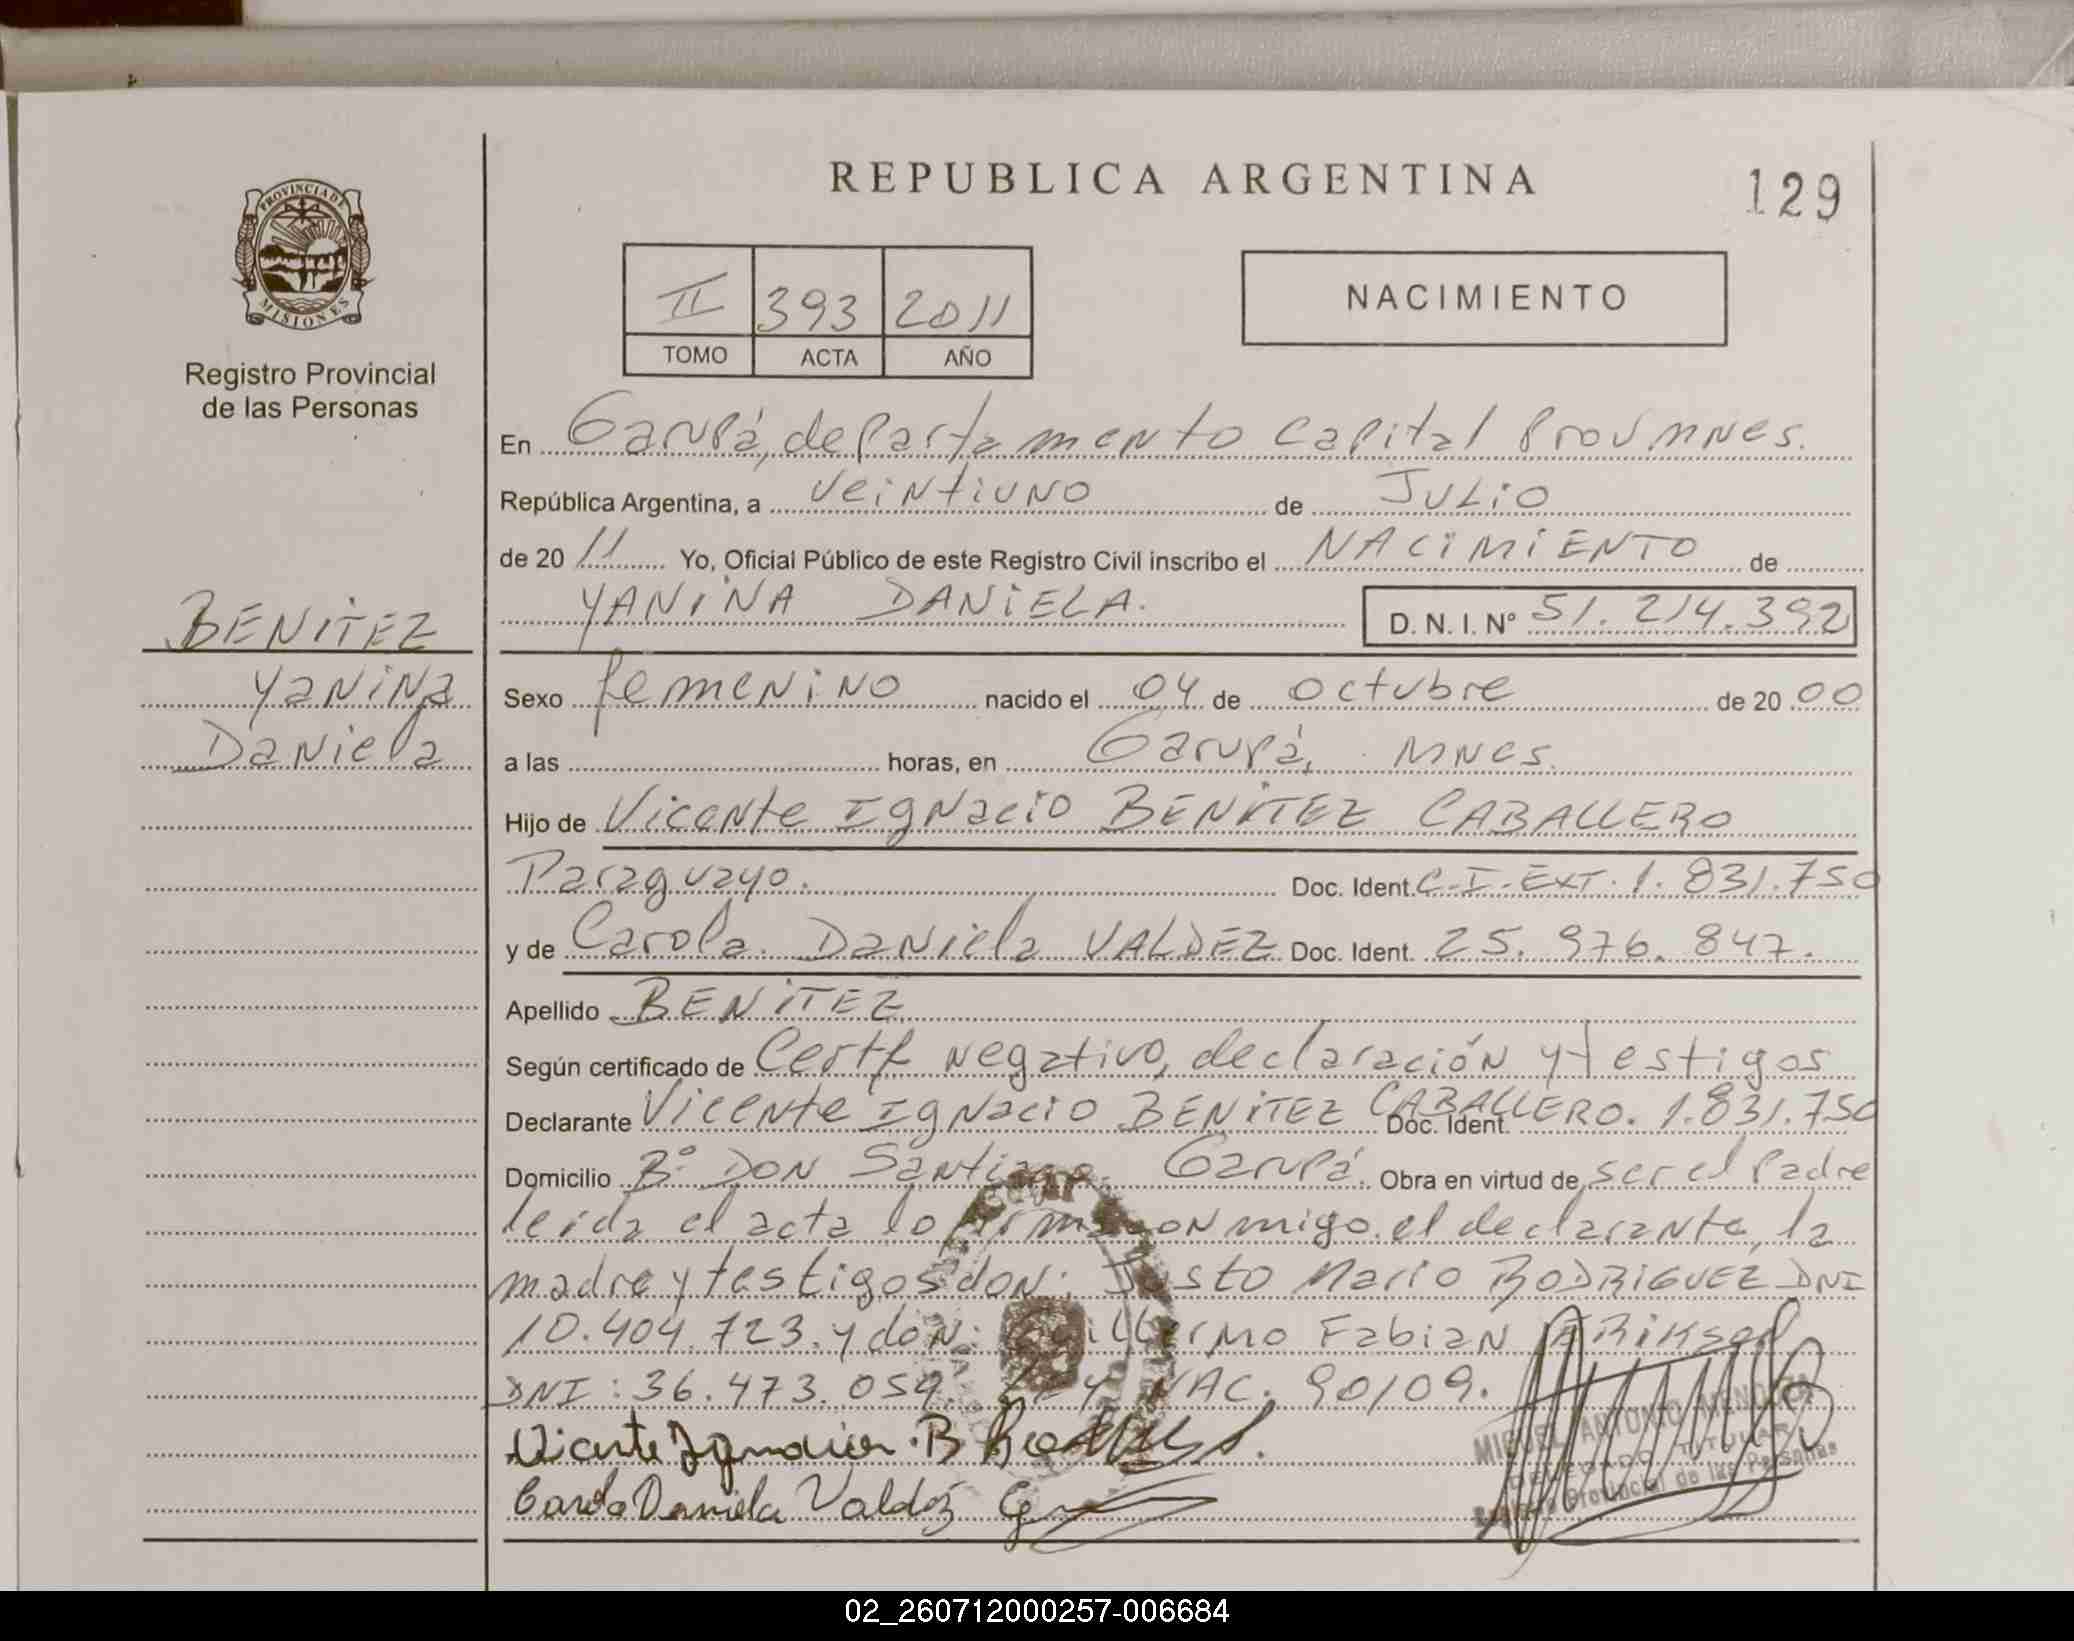 REPUBLICA ARGENTINA
129
PROVINCIA DE
MISIONES
Registro Provincial
de las Personas
II 393 2011
TOMO ACTA AÑO
NACIMIENTO
En Garupá, departamento Capital Prov Mnes.
República Argentina, a veintiuno de JULIO
de 20 11 Yo, Oficial Público de este Registro Civil inscribo el NACIMIENTO de
YANINA DANIELA. D. N. I. Nº 51.214.392
BENITEZ
Yanina
Daniela
Sexo femenino nacido el 04 de octubre de 20 00
a las horas, en Garupá, Mnes.
Hijo de Vicente Ignacio BENITEZ CABALLERO
Paraguayo. Doc. Ident. C.I. Ext. 1.831.750
y de Carola Daniela VALDEZ Doc. Ident. 25.976.847.
Apellido BENITEZ
Según certificado de Certf negativo, declaración y testigos
Declarante Vicente Ignacio BENITEZ CABALLERO. Doc. Ident. 1.831.750
Domicilio Bº DON Santiago Garupá. Obra en virtud de ser el Padre
leida el acta lo firma conmigo el declarante, la
madre y testigos don: Justo Mario RODRIGUEZ DNI
10.404.723. y don: Guillermo Fabian
DNI: 36.473.059 LEY NAC. 90/09.
Vicente Ignacio B
Carola Daniela Valdéz
MIGUEL ANTONIO MENDOZA
DELEGADO TITULAR
Registro Provincial de las Personas
02_260712000257-006684